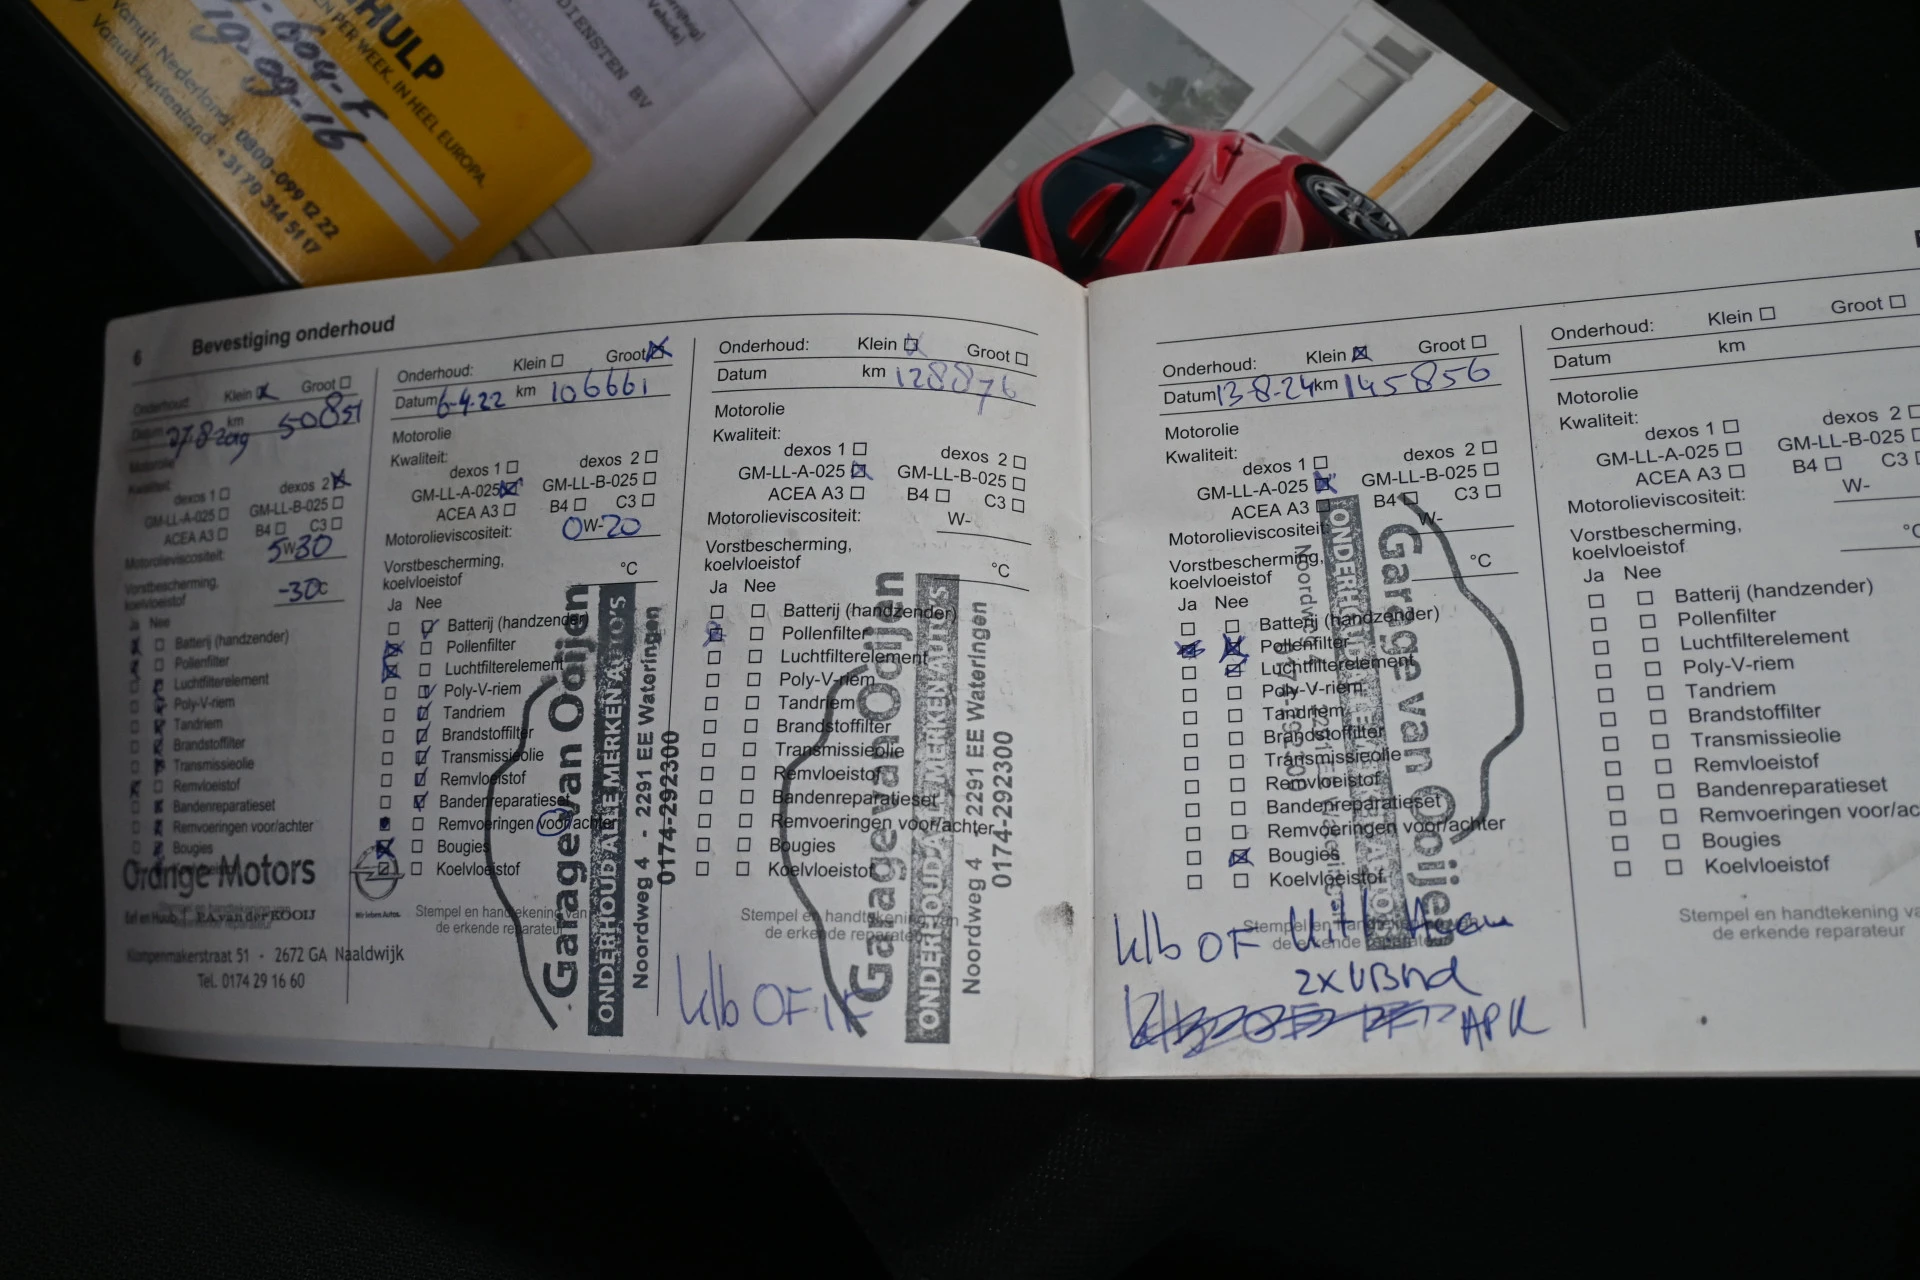 HULP
EN PER WEEK, IN HEEL EUROPA.
-604-F
19-09-16
Vanuit Nederland: 0800-099 12 22
Vanuit buitenland: +31 70 314 51 17
DIENSTEN BV
6 Bevestiging onderhoud
Onderhoud: Klein Groot
Datum 27-8-2019 km 50851
Motorolie
Kwaliteit:
dexos 1 dexos 2
GM-LL-A-025 GM-LL-B-025
ACEA A3 B4 C3
Motorolieviscositeit: 5W30
Vorstbescherming,
koelvloeistof -30c
Ja Nee
Batterij (handzender)
Pollenfilter
Luchtfilterelement
Poly-V-riem
Tandriem
Brandstoffilter
Transmissieolie
Remvloeistof
Bandenreparatieset
Remvoeringen voor/achter
Bougies
Orange Motors
P.A. van der KOOIJ
Klompenmakerstraat 51 - 2672 GA Naaldwijk
Tel. 0174 29 16 60
Wir leben Autos.
Onderhoud: Klein Groot
Datum 6-4-22 km 106661
Motorolie
Kwaliteit:
dexos 1 dexos 2
GM-LL-A-025 GM-LL-B-025
ACEA A3 B4 C3
Motorolieviscositeit: 0W-20
Vorstbescherming,
koelvloeistof °C
Ja Nee
Batterij (handzender)
Pollenfilter
Luchtfilterelement
Poly-V-riem
Tandriem
Brandstoffilter
Transmissieolie
Remvloeistof
Bandenreparatieset
Remvoeringen voor/achter
Bougies
Koelvloeistof
Stempel en handtekening van
de erkende reparateur
Garage van Ooijen
ONDERHOUD ALLE MERKEN AUTO'S
Noordweg 4 - 2291 EE Wateringen
0174-292300
Onderhoud: Klein Groot
Datum km 128876
Motorolie
Kwaliteit:
dexos 1 dexos 2
GM-LL-A-025 GM-LL-B-025
ACEA A3 B4 C3
Motorolieviscositeit: W-
Vorstbescherming,
koelvloeistof °C
Ja Nee
Batterij (handzender)
Pollenfilter
Luchtfilterelement
Poly-V-riem
Tandriem
Brandstoffilter
Transmissieolie
Remvloeistof
Bandenreparatieset
Remvoeringen voor/achter
Bougies
Koelvloeistof
Stempel en handtekening van
de erkende reparateur
Garage van Ooijen
ONDERHOUD ALLE MERKEN AUTO'S
Noordweg 4 - 2291 EE Wateringen
0174-292300
klb OF. IF
Onderhoud: Klein Groot
Datum 13-8-24 km 145856
Motorolie
Kwaliteit:
dexos 1 dexos 2
GM-LL-A-025 GM-LL-B-025
ACEA A3 B4 C3
Motorolieviscositeit: W-
Vorstbescherming,
koelvloeistof °C
Ja Nee
Batterij (handzender)
Pollenfilter
Luchtfilterelement
Poly-V-riem
Tandriem
Brandstoffilter
Transmissieolie
Remvloeistof
Bandenreparatieset
Remvoeringen voor/achter
Bougies
Koelvloeistof
Stempel en handtekening van
de erkende reparateur
Garage van Ooijen
klb OF
2x VBnd
APK
Onderhoud: Klein Groot
Datum km
Motorolie
Kwaliteit:
dexos 1 dexos 2
GM-LL-A-025 GM-LL-B-025
ACEA A3 B4 C3
Motorolieviscositeit: W-
Vorstbescherming,
koelvloeistof
Ja Nee
Batterij (handzender)
Pollenfilter
Luchtfilterelement
Poly-V-riem
Tandriem
Brandstoffilter
Transmissieolie
Remvloeistof
Bandenreparatieset
Remvoeringen voor/ac
Bougies
Koelvloeistof
Stempel en handtekening va
de erkende reparateur